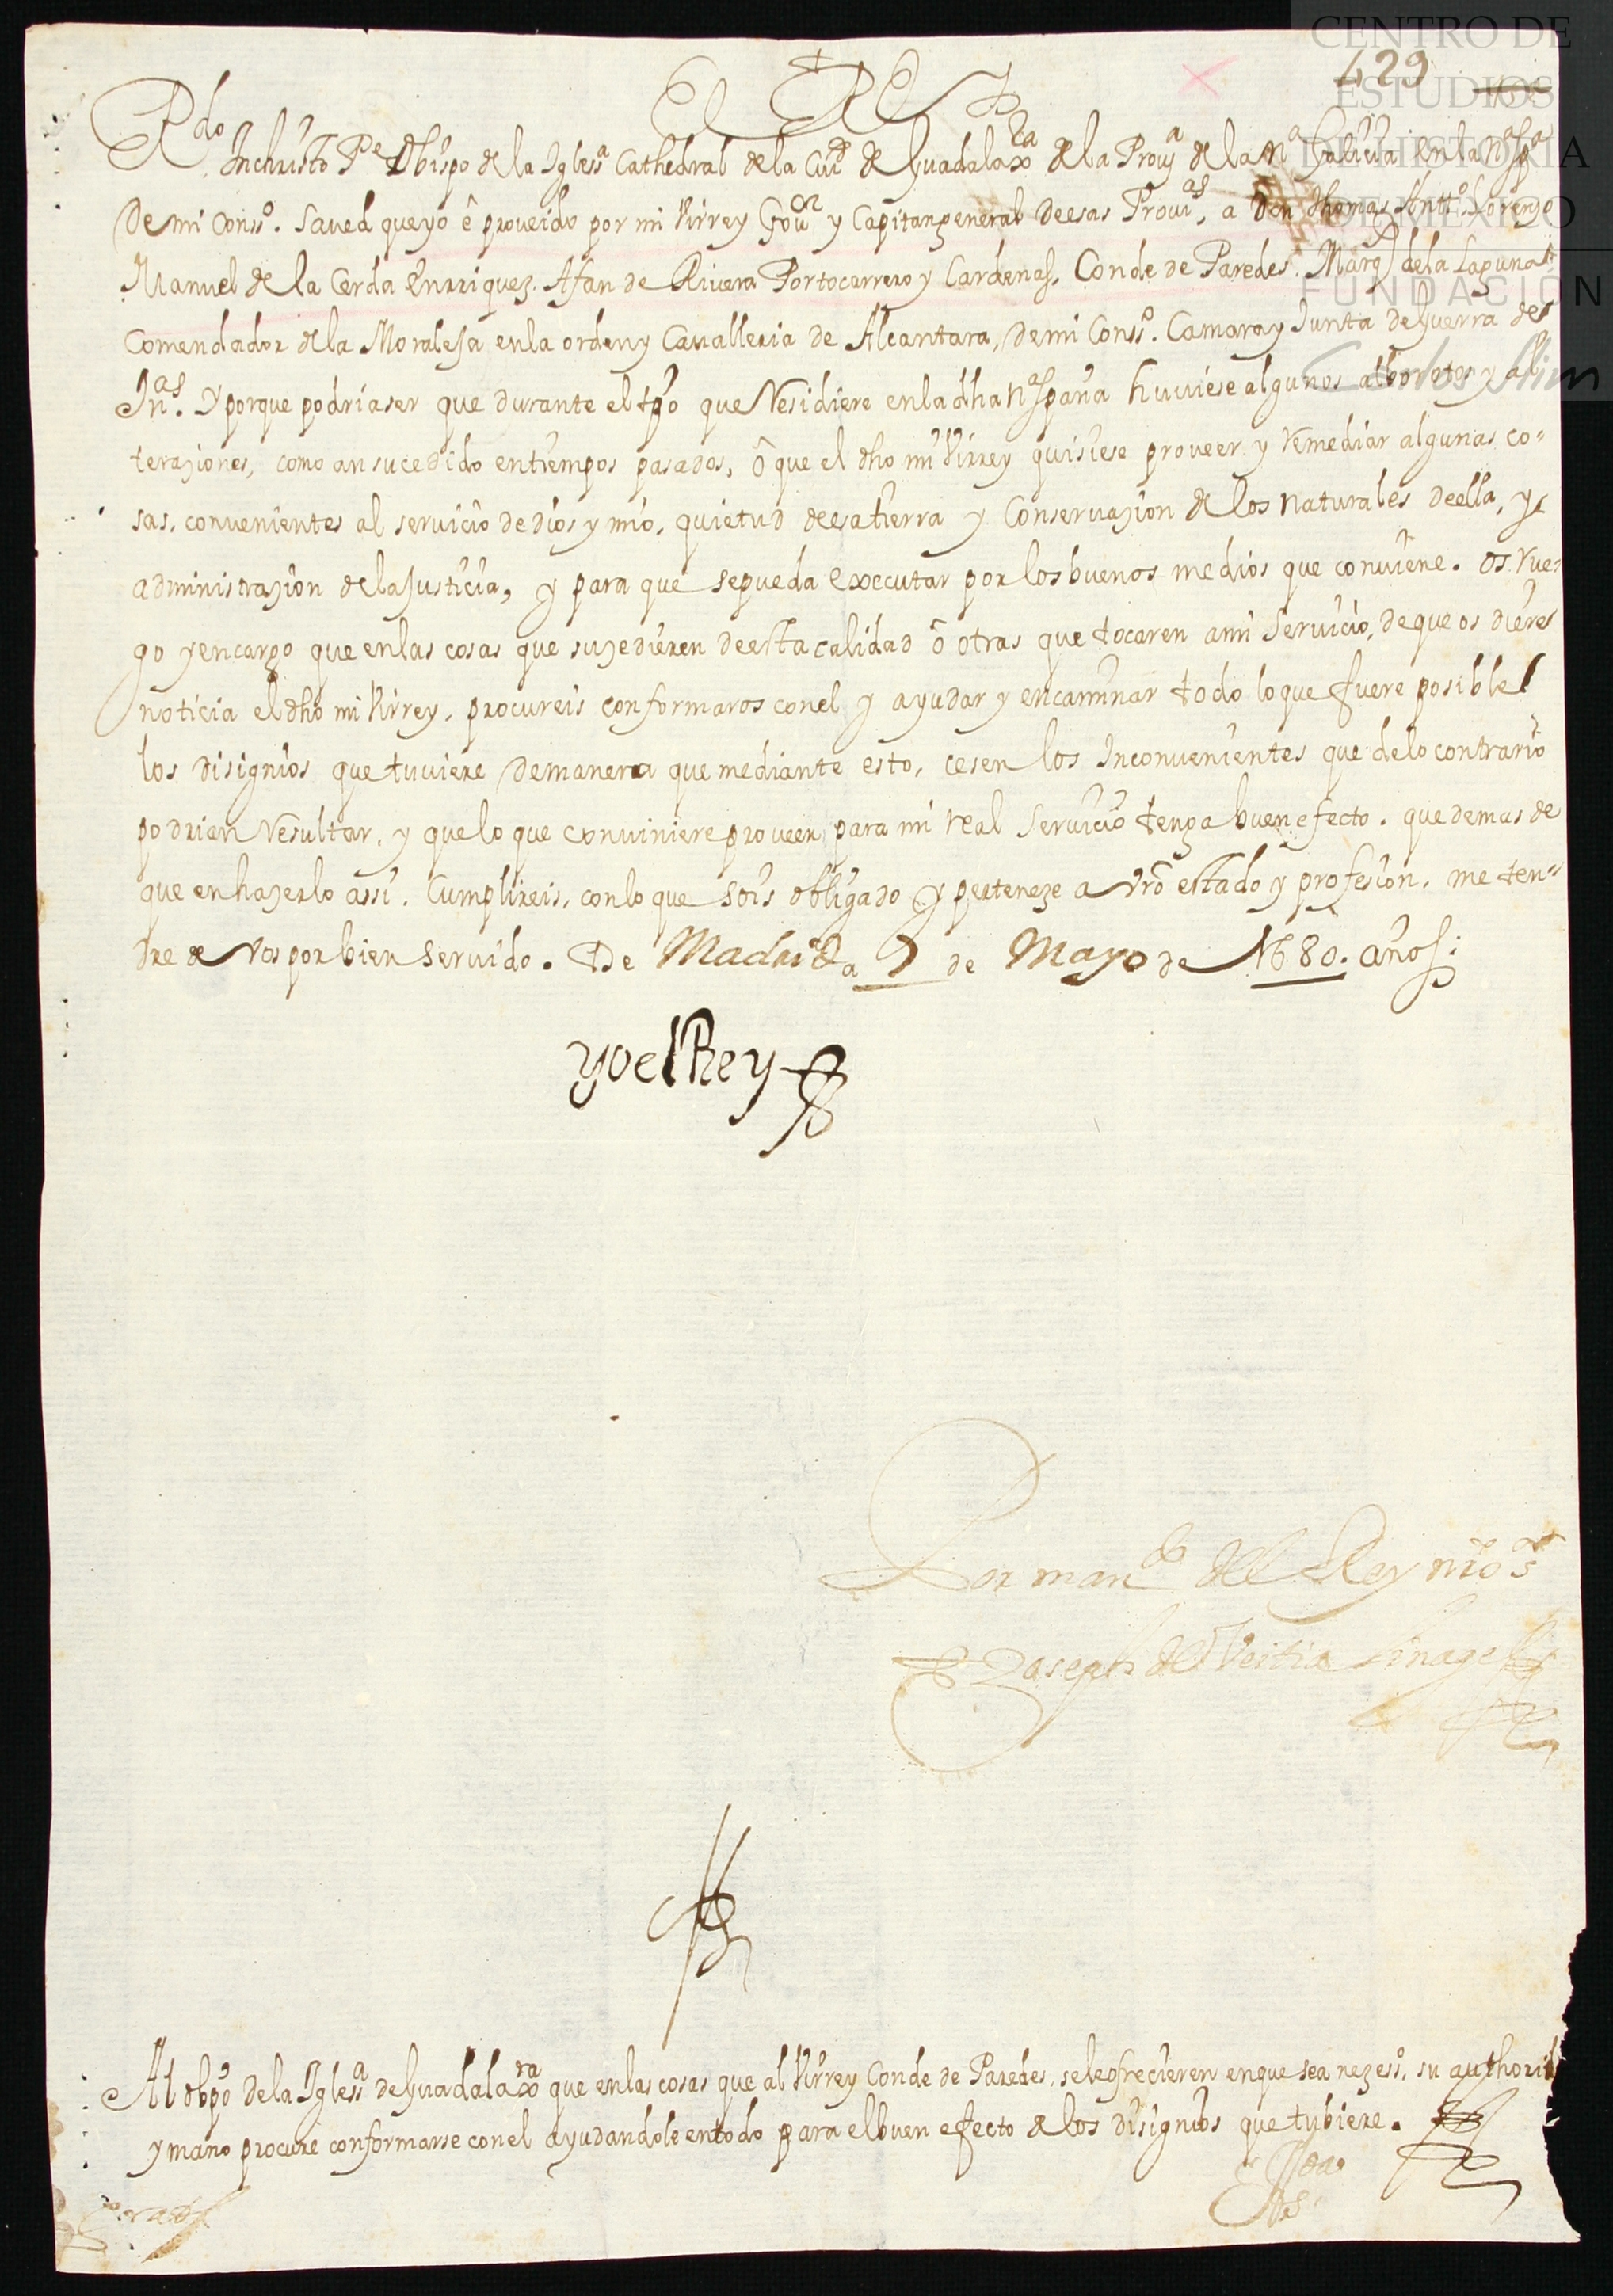 CENTRO DE
ESTUDIOS
DE HISTORIA
DE MÉXICO
FUNDACIÓN
Carlos Slim
429
El Rey
Rdo Inchristo Pe Obispo de la Iglessa Cathedral de la Ciud de Guadalaxra de la Prova de la Na Galicia en la Na Spa
De mi Conso. Saved que yo ê proveido por mi Virrey Govor y Capitan general de esas Provias, a Don Thomas Antto. Lorenzo
Manuel de la Cerda Enrriquez. Afan de Rivera Portocarrero y Cardenas. Conde de Paredes. Marqs de la Laguna
Comendador de la Moraleja en la orden y Cavalleria de Alcantara, de mi Conso. Camara y Junta de Guerra de
Inas. Y porque podria ser que durante el tpo que Residiere en la dha Na España huviese algunos alborotos y al
teraziones, como an sucedido en tiempos pasados, ô que el dho mi Virrey quisiese proveer y remediar algunas co=
sas, convenientes al servicio de dios y mio, quietud de esa tierra y Conservazion de los naturales de ella, y
administrazion de la Justicia, y para que se pueda executar por los buenos medios que conviene. Os Rue=
go y encargo que en las cosas que suzedieren de esta calidad ô otras que tocaren a mi servicio, de que os diere
noticia el dho mi Virrey, procureis conformaros con el y ayudar y encaminar todo lo que fuere posible
los disignios que tuviere de manera que mediante esto, cesen los Inconvenientes que de lo contrario
podrian Resultar, y que lo que conviniere proveer para mi real servicio tenga buen efecto. que demas de
que en hazerlo assi. Cumplireis, con lo que sois obligado y perteneze a vro estado y profesion, me ten=
dre de vos por bien servido. De Madrid a 7 de Mayo de 1680. años.
yo el Rey
Por mando del Rey nro sr
Joseph de Veitia Linage
Al obpo de la Iglessa de Guadalaxra que en las cosas que al Virrey Conde de Paredes, se le ofrecieren en que sea nezesso. su authorid
y mano procure conformarse con el ayudandole en todo para el buen efecto de los disignios que tubiere.